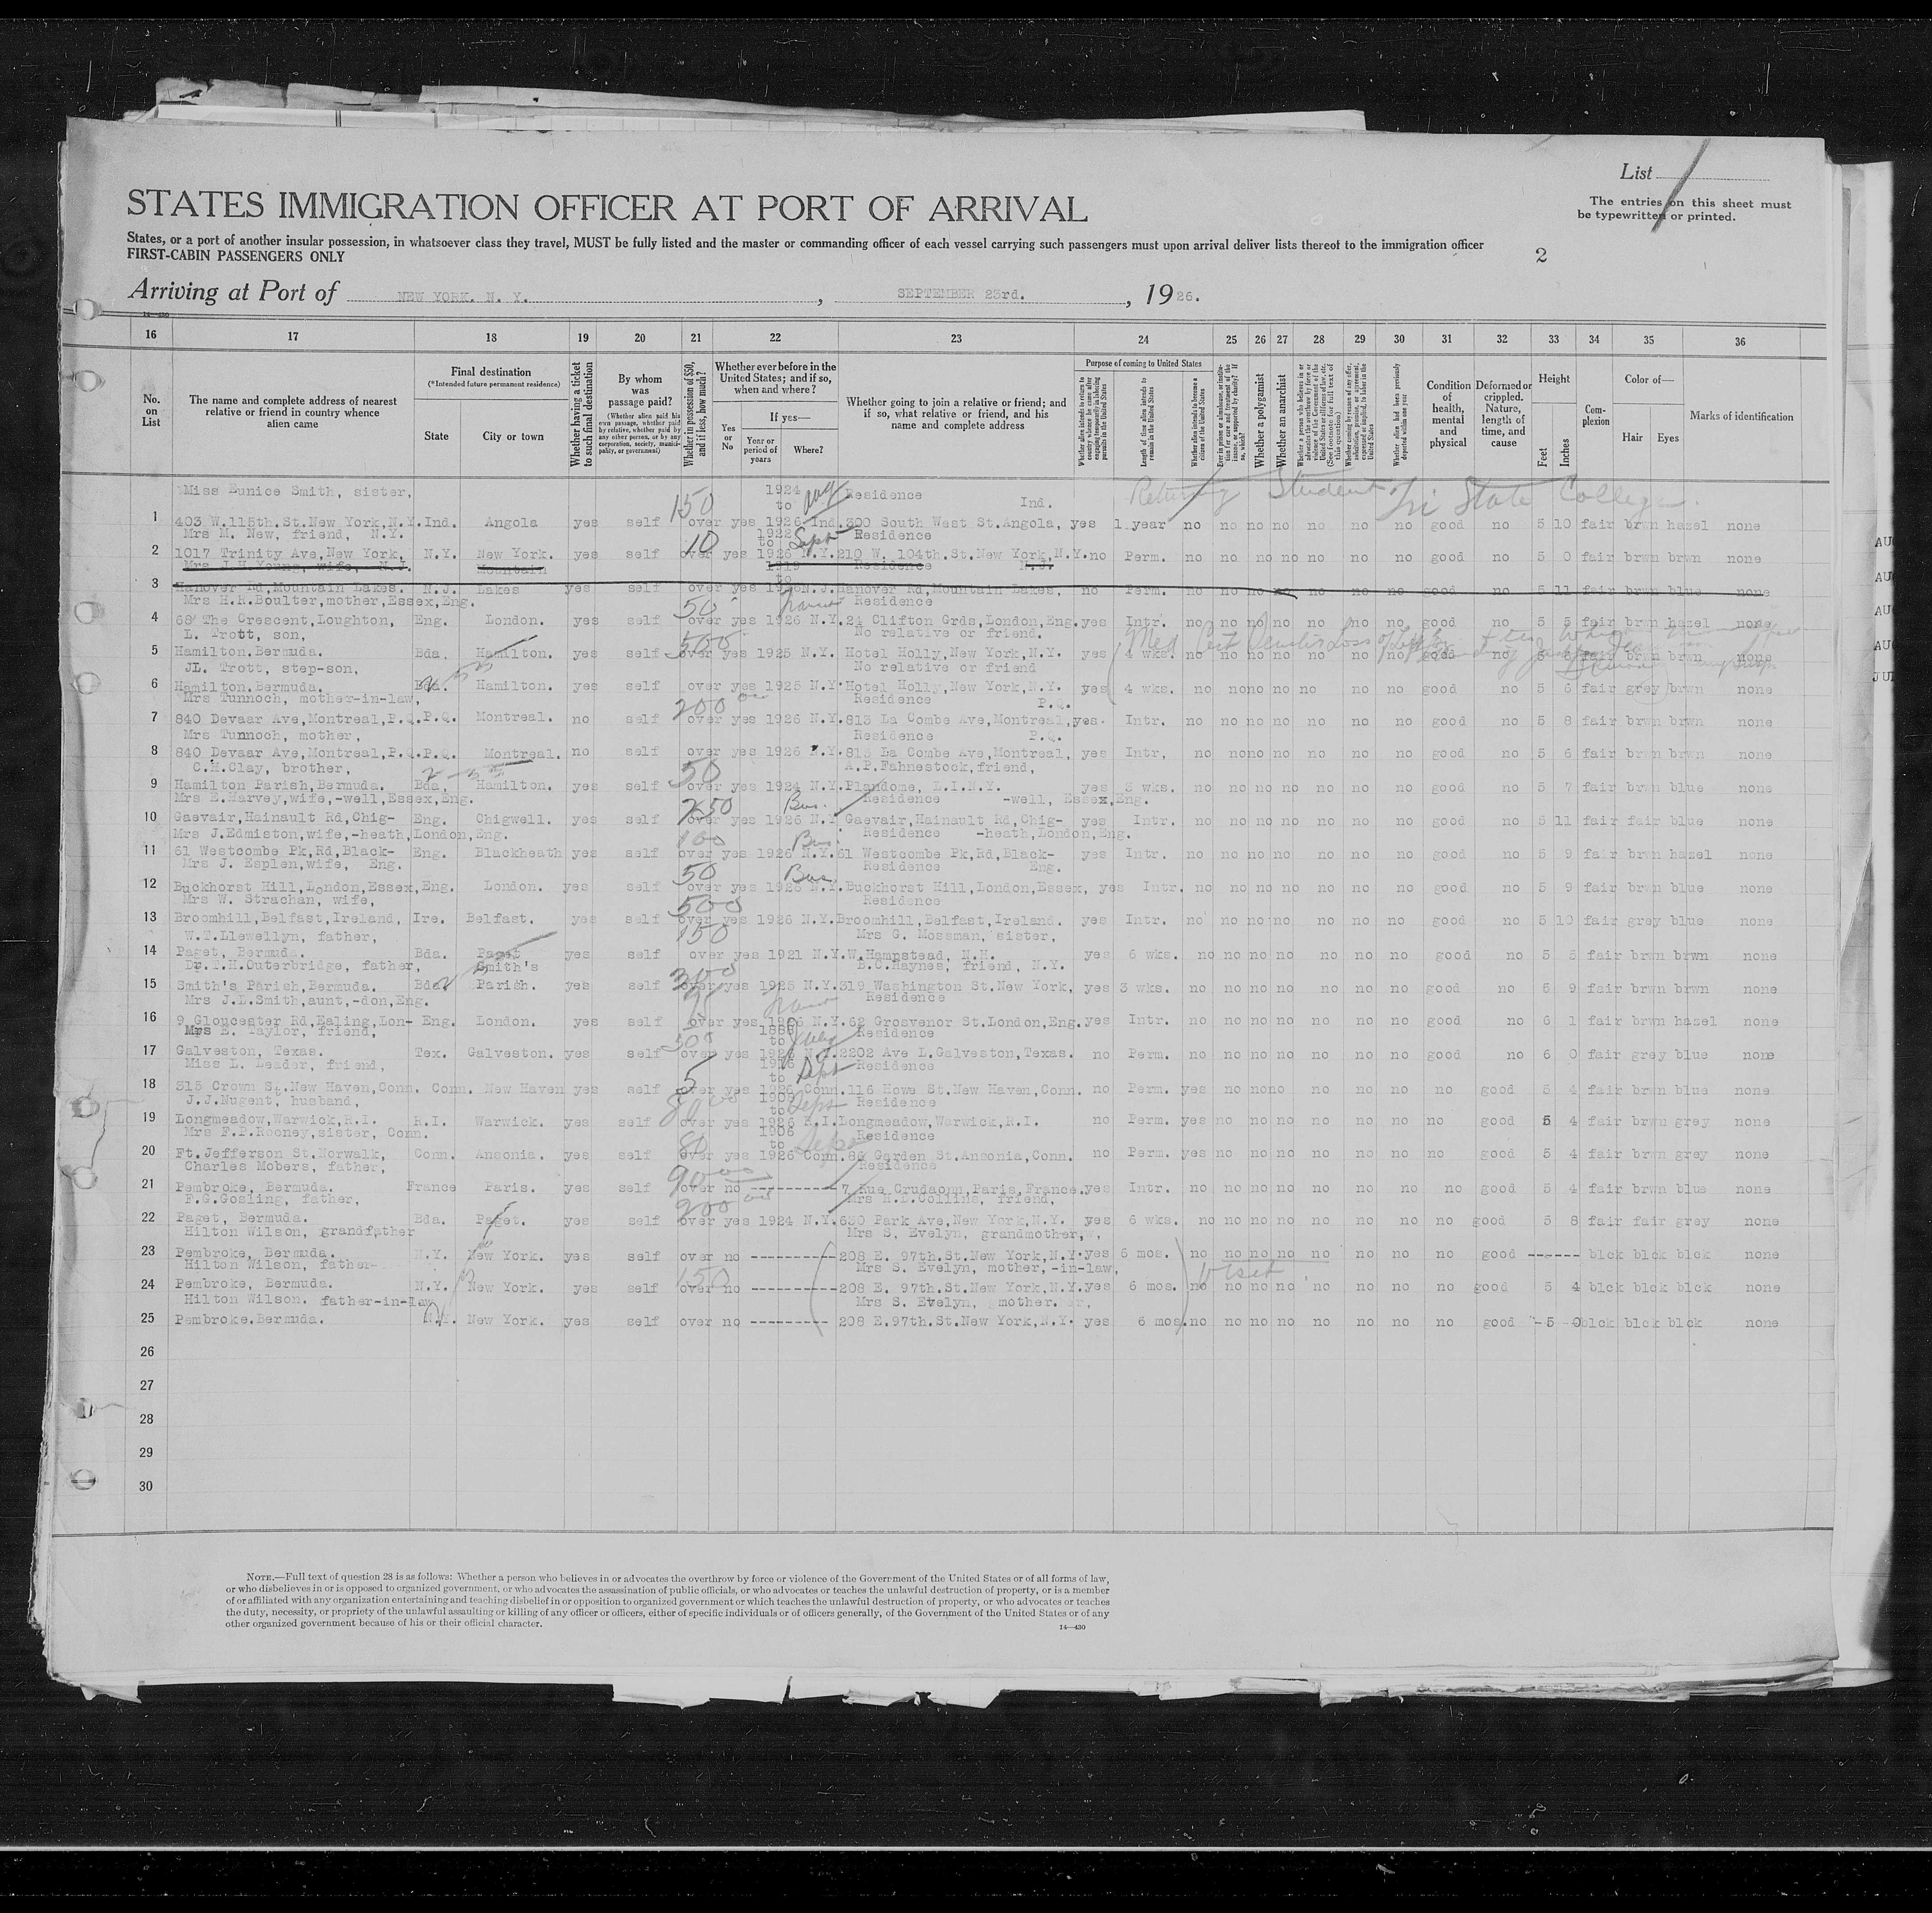 List
The entries on this sheet must
be typewritten or printed.
STATES IMMIGRATION OFFICER AT PORT OF ARRIVAL
States, or a port of another insular possession, in whatsoever class they travel, MUST be fully listed and the master or commanding officer of each vessel carrying such passengers must upon arrival deliver lists thereof to the immigration officer
FIRST-CABIN PASSENGERS ONLY
2
Arriving at Port of NEW YORK. N. Y. , SEPTEMBER 23rd. , 1926.
14—430
16 17 18 19 20 21 22 23 24 25 26 27 28 29 30 31 32 33 34 35 36
No. on List
The name and complete address of nearest relative or friend in country whence alien came
Final destination
(*Intended future permanent residence)
State
City or town
Whether having a ticket to such final destination
By whom was passage paid?
(Whether alien paid his own passage, whether paid by relative, whether paid by any other person, or by any corporation, society, municipality, or government)
Whether in possession of $50, and if less, how much?
Whether ever before in the United States; and if so, when and where?
Yes or No
If yes—
Year or period of years
Where?
Whether going to join a relative or friend; and if so, what relative or friend, and his name and complete address
Purpose of coming to United States
Length of time alien intends to remain in the United States
Whether a polygamist
Whether an anarchist
Condition of health, mental and physical
Deformed or crippled. Nature, length of time, and cause
Height
Feet
Inches
Complexion
Color of—
Hair
Eyes
Marks of identification
Returning Student Tri State College.
Miss Eunice Smith, sister, 150 1924 to Aug Residence Ind.
1 403 W.115th.St.New York,N.Y. Ind. Angola yes self over yes 1926 Ind. 300 South West St.Angola, yes 1 year no no no no no no no good no 5 10 fair brwn hazel none
Mrs M. New, friend, N.Y. 10 1922 to Sept Residence
2 1017 Trinity Ave,New York, N.Y. New York. yes self over yes 1926 N.Y. 210 W. 104th.St.New York,N.Y. no Perm. no no no no no no no good no 5 0 fair brwn brwn none
Mrs J.H.Young, wife, N.J. Mountain 1919 to Residence N.J.
3 Hanover Rd,Mountain Lakes. N.J. Lakes yes self over yes 1926 N.J. Hanover Rd,Mountain Lakes, no Perm. no no no no no no no good no 5 11 fair brwn blue none
Mrs H.R.Boulter,mother,Essex,Eng. 50 Residence
4 68 The Crescent,Loughton, Eng. London. yes self over yes 1926 N.Y. 24 Clifton Grds,London,Eng. yes Intr. no no no no no no no good no 5 5 fair brwn hazel none
L. Trott, son, 500 No relative or friend. Med Cert
5 Hamilton.Bermuda. Bda. Hamilton. yes self over yes 1925 N.Y. Hotel Holly,New York,N.Y. yes 4 wks. no no no no no no no good no fair brwn brwn none
JL. Trott, step-son, No relative or friend
6 Hamilton.Bermuda. Bda. Hamilton. yes self over yes 1925 N.Y. Hotel Holly,New York,N.Y. yes 4 wks. no no no no no no no good no 5 6 fair grey brwn none
Mrs Tunnoch, mother-in-law, 200 Residence P.Q.
7 840 Devaar Ave,Montreal,P.Q. P.Q. Montreal. no self over yes 1926 N.Y. 813 La Combe Ave,Montreal, yes. Intr. no no no no no no no good no 5 8 fair brwn brwn none
Mrs Tunnoch, mother, Residence P.Q.
8 840 Devaar Ave,Montreal,P.Q. P.Q. Montreal. no self over yes 1926 N.Y. 813 La Combe Ave,Montreal, yes Intr, no no no no no no no good no 5 6 fair brwn brwn none
C.M.Clay, brother, 50 A.P.Fahnestock,friend,
9 Hamilton Parish,Bermuda. Bda, Hamilton. yes self over yes 1924 N.Y. Plandome, L.I.N.Y. yes 3 wks. no no no no no no no good no 5 7 fair brwn blue none
Mrs E.Harvey,wife,-well,Essex,Eng. 250 Bus. Residence -well, Essex,Eng.
10 Gaevair,Hainault Rd,Chig- Eng. Chigwell. yes self over yes 1926 N.Y Gaevair,Hainault Rd,Chig- yes Intr. no no no no no no no good no 5 11 fair fair blue none
Mrs J.Edmiston,wife,-heath,London,Eng. 100 Bus. Residence -heath,London,Eng.
11 61 Westcombe Pk,Rd,Black- Eng. Blackheath yes self over yes 1926 N.Y. 61 Westcombe Pk,Rd,Black- yes Intr. no no no no no no no good no 5 9 fair brwn hazel none
Mrs J. Esplen,wife, Eng. 50 Bus Residence Eng.
12 Buckhorst Hill,London,Essex, Eng. London. yes self over yes 1926 N.Y. Buckhorst Hill,London,Essex, yes Intr. no no no no no no no good no 5 9 fair brwn blue none
Mrs W. Strachan, wife, 500 Residence
13 Broomhill,Belfast,Ireland, Ire. Belfast. yes self over yes 1926 N.Y. Broomhill,Belfast,Ireland. yes Intr. no no no no no no no good no 5 10 fair grey blue none
W.T.Llewellyn, father, 150 Mrs G. Mossman, sister,
14 Paget, Bermuda. Bda. Paget yes self over yes 1921 N.Y. W.Hampstead, N.H. yes 6 wks. no no no no no no no good no 5 5 fair brwn brwn none
Dr.T.H.Outerbridge, father, Smith's 300 B.C.Haynes, friend, N.Y.
15 Smith's Parish,Bermuda. Bda. Parish. yes self over yes 1925 N.Y. 319 Washington St.New York, yes 3 wks. no no no no no no no good no 5 9 fair brwn brwn none
Mrs J.L.Smith,aunt,-don,Eng. Residence
16 9 Gloucester Rd,Ealing,Lon- Eng. London. yes self over yes 1926 N.Y. 62 Grosvenor St.London,Eng. yes Intr. no no no no no no no good no 6 1 fair brwn hazel none
Mrs E. Taylor, friend, 300 1888 to July Residence
17 Galveston, Texas. Tex. Galveston. yes self over yes 1926 2202 Ave L.Galveston,Texas. no Perm. no no no no no no no good no 6 0 fair grey blue none
Miss L. Leader, friend, 5 to Sept Residence
18 315 Crown St.New Haven,Conn. Conn. New Haven yes self over yes 1926 Conn. 116 Howe St.New Haven,Conn. no Perm. yes no no no no no no good 5 4 fair brwn blue none
J.J.Nugent, husband, 1909 to Sept Residence
19 Longmeadow,Warwick,R.I. R.I. Warwick. yes self over yes 1926 R.I. Longmeadow,Warwick,R.I. no Perm. yes no no no no no no no good 5 4 fair brwn grey none
Mrs F.P.Rooney,sister, Conn. 80 1906 to Sept Residence
20 Ft.Jefferson St.Norwalk, Conn. Ansonia. yes self over yes 1926 Conn. 86 Garden St.Ansonia,Conn. no Perm. yes no no no no no no no good 5 4 fair brwn grey none
Charles Mobers, father, 90 Residence
21 Pembroke, Bermuda. France Paris. yes self over no ---------- 7 Rue Crudaonn,Paris,France. yes Intr. no no no no no no no good 5 4 fair brwn blue none
F.G.Gosling, father, 200 Mrs H.L.Collins, friend,
22 Paget, Bermuda. Bda. Paget. yes self over yes 1924 N.Y. 630 Park Ave,New York,N.Y. yes 6 wks. no no no no no no no good 5 8 fair fair grey none
Hilton Wilson, grandfather Mrs S, Evelyn, grandmother,
23 Pembroke, Bermuda. N.Y. New York. yes self over no ---------- 208 E. 97th.St.New York,N.Y. yes 6 mos. no no no no no no no no good ------ blck blck blck none
Hilton Wilson, father- 150 Mrs S. Evelyn, mother,-in-law, visit
24 Pembroke, Bermuda. N.Y. New York. yes self over no ---------- 208 E. 97th.St.New York,N.Y. yes 6 mos. no no no no no no no no good 5 4 blck blck blck none
Hilton Wilson. father-in-law Mrs S. Evelyn, mother.
25 Pembroke.Bermuda. N.Y. New York. yes self over no ---------- 208 E.97th.St.New York,N.Y. yes 6 mos. no no no no no no no no good 5 0 blck blck blck none
26
27
28
29
30
NOTE.—Full text of question 28 is as follows: Whether a person who believes in or advocates the overthrow by force or violence of the Government of the United States or of all forms of law,
or who disbelieves in or is opposed to organized government, or who advocates the assassination of public officials, or who advocates or teaches the unlawful destruction of property, or is a member
of or affiliated with any organization entertaining and teaching disbelief in or opposition to organized government or which teaches the unlawful destruction of property, or who advocates or teaches
the duty, necessity, or propriety of the unlawful assaulting or killing of any officer or officers, either of specific individuals or of officers generally, of the Government of the United States or of any
other organized government because of his or their official character.
14—430